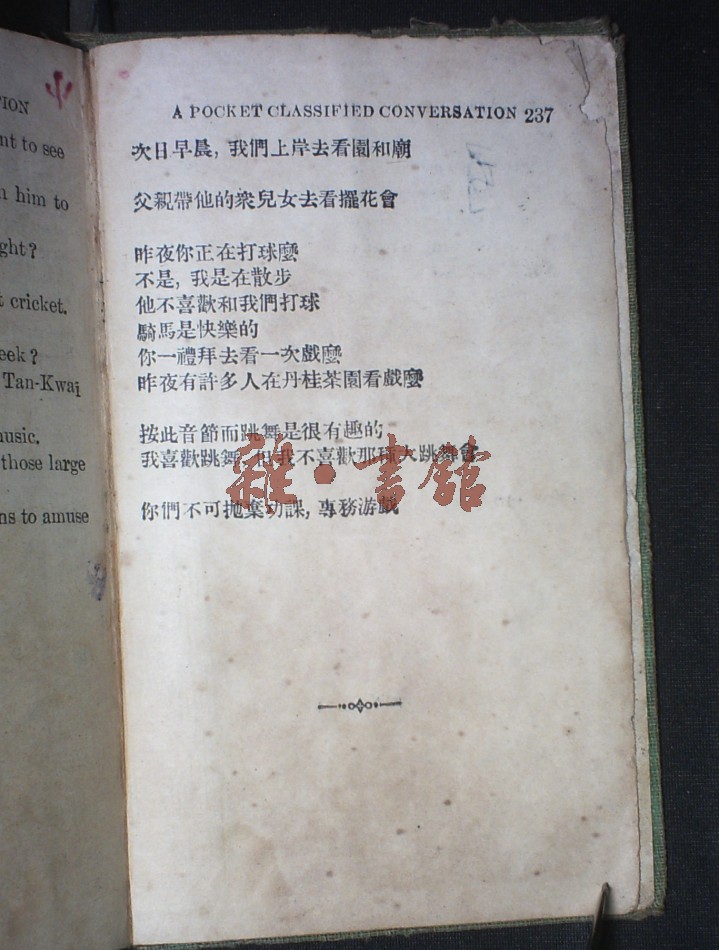 TION
nt to see
n him to
ght?
cricket.
eek?
Tan-Kwai
music.
those large
ns to amuse
A POCKET CLASSIFIED CONVERSATION 237
次日早晨, 我們上岸去看園和廟
父親帶他的衆兒女去看擺花會
昨夜你正在打球麼
不是, 我是在散步
他不喜歡和我們打球
騎馬是快樂的
你一禮拜去看一次戲麼
昨夜有許多人在丹桂茶園看戲麼
按此音節而跳舞是很有趣的
我喜歡跳舞, 但我不喜歡那種大跳舞會
你們不可拋棄功課, 專務游戲
雜·書館